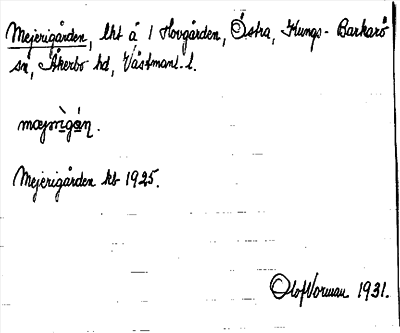 Mejerigården, lht å 1 Hovgården, Östra, Kungs-Barkarö
sn, Åkerbo hd, Västmanl. l.
mæjrìgán.
Mejerigården kb 1925.
Olof Vorman 1931.